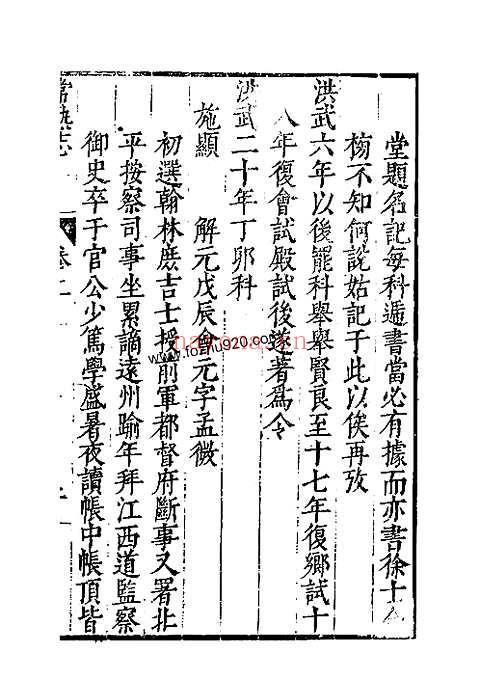 堂題名記每科遞書當必有據而亦書徐十
栯不知何説姑記于此以俟再攷
洪武六年以後罷科舉舉賢良至十七年復鄉試十
八年復會試殿試後遂著爲令
洪武二十年丁卯科
施顯 解元戊辰會元字孟微
初選翰林庶吉士授前軍都督府斷事又署北
平按察司事坐累謫遠州踰年拜江西道監察
御史卒于官公少篤學盛暑夜讀帳中帳頂皆
常熟志 卷二